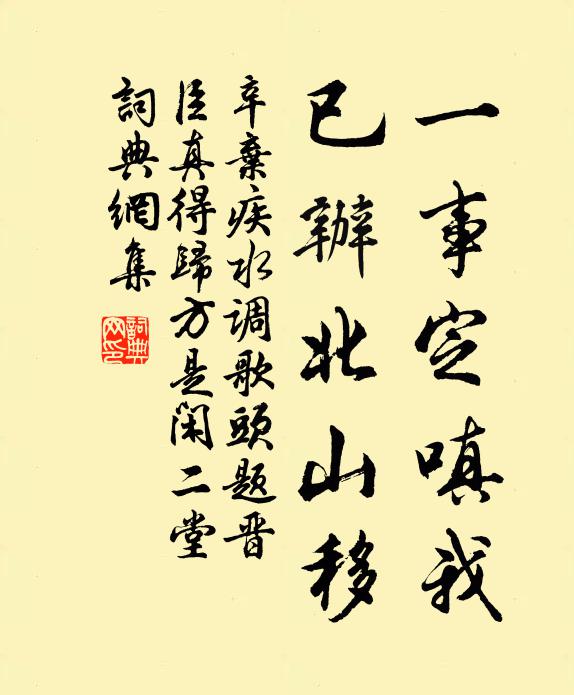 一事定嗔我
已辦北山移
辛棄疾水调歌頭題晋
臣真得歸方是闲二堂
詞典網集
詞典网印